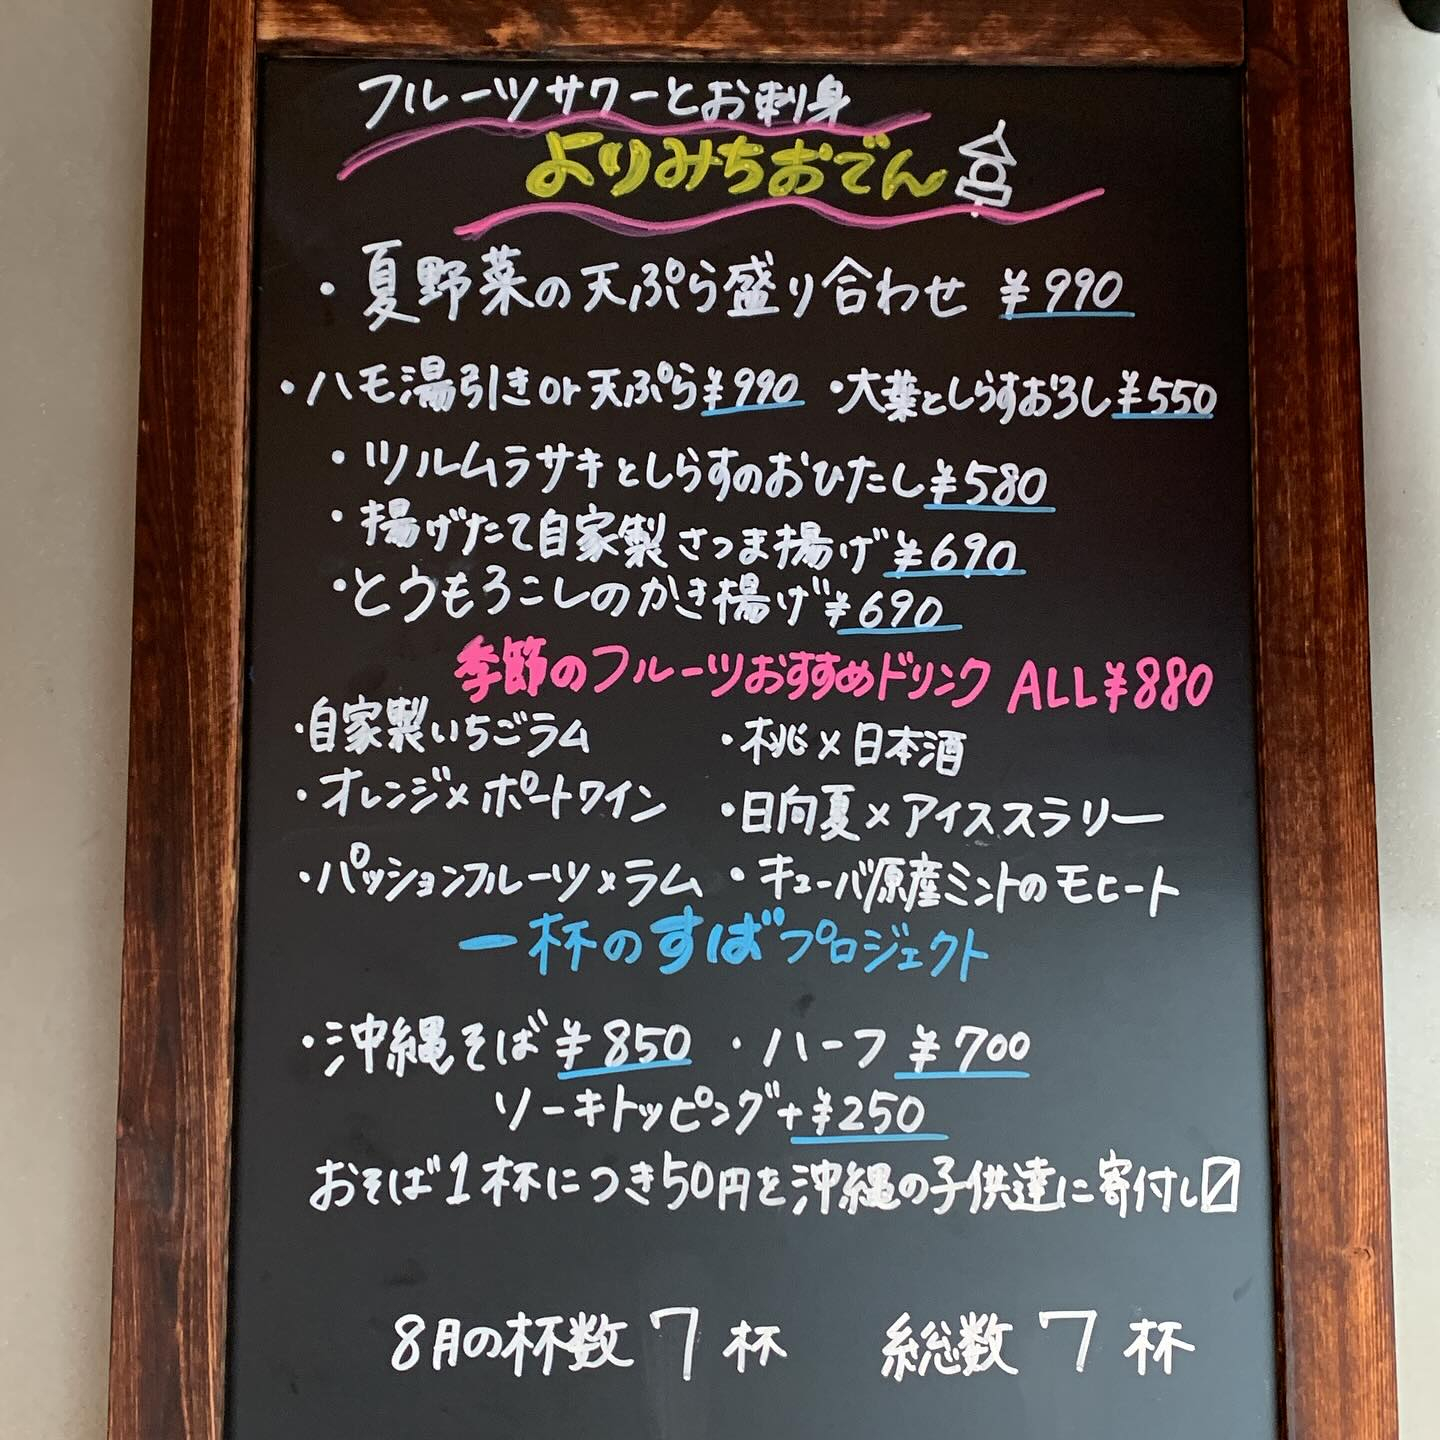 フルーツサワーとお刺身
よりみちおでん
・夏野菜の天ぷら盛り合わせ ¥990
・ハモ湯引きor天ぷら¥990 ・大葉としらすおろし¥550
・ツルムラサキとしらすのおひたし¥580
・揚げたて自家製さつま揚げ¥690
・とうもろこしのかき揚げ¥690
季節のフルーツおすすめドリンク ALL¥880
・自家製いちごラム ・桃×日本酒
・オレンジ×ポートワイン ・日向夏×アイススラリー
・パッションフルーツ×ラム ・キューバ原産ミントのモヒート
一杯のすばプロジェクト
・沖縄そば¥850 ・ハーフ ¥700
ソーキトッピング+¥250
おそば1杯につき50円を沖縄の子供達に寄付し〼
8月の杯数 7杯 総数 7杯